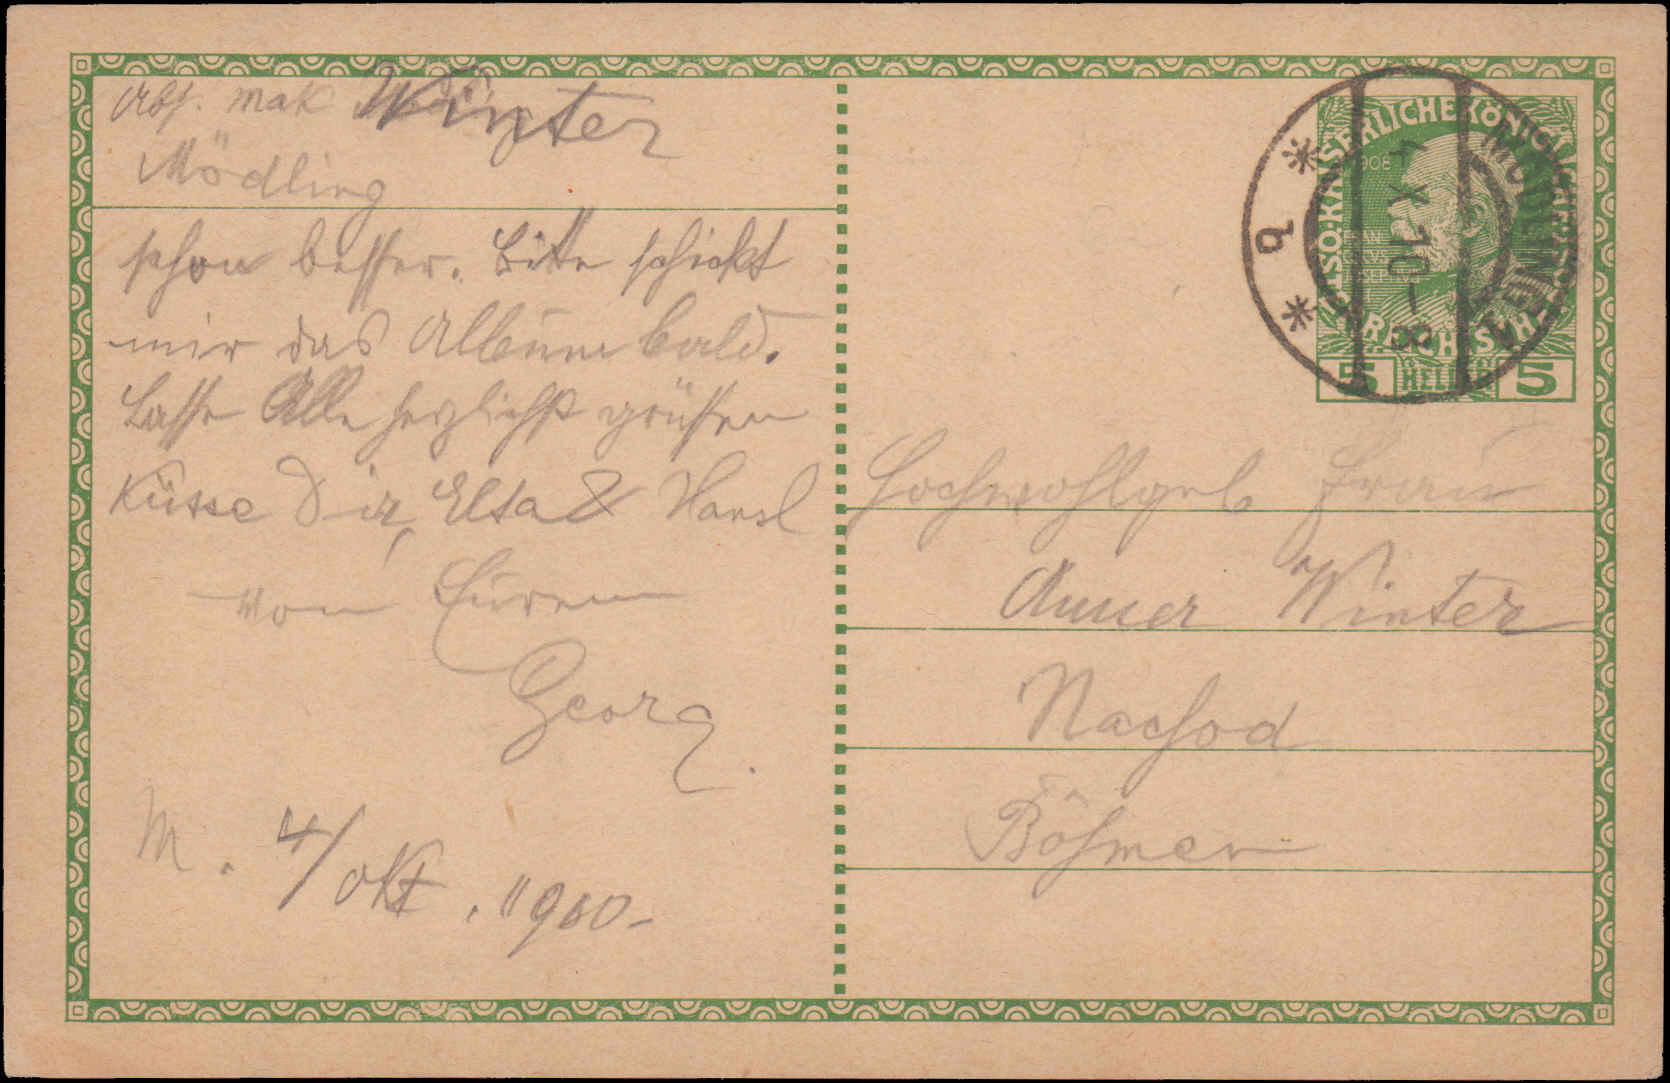 Abs. Mak Winter
Mödling
schon besser. Bitte schickt
mir das Album bald.
Lasse Alle herzlichst grüßen
Küsse Dir, Elsa & Hansl
von Eurem
Georg.
M. 4/Okt. 1910-
KAISERLICHE KÖNIGLICHE
1908
5 HELLER 5
MÖDLING 1
4 X 10 - 8
* 9 *
Hochwohlgeb Frau
Anna Winter
Nachod
Böhmen